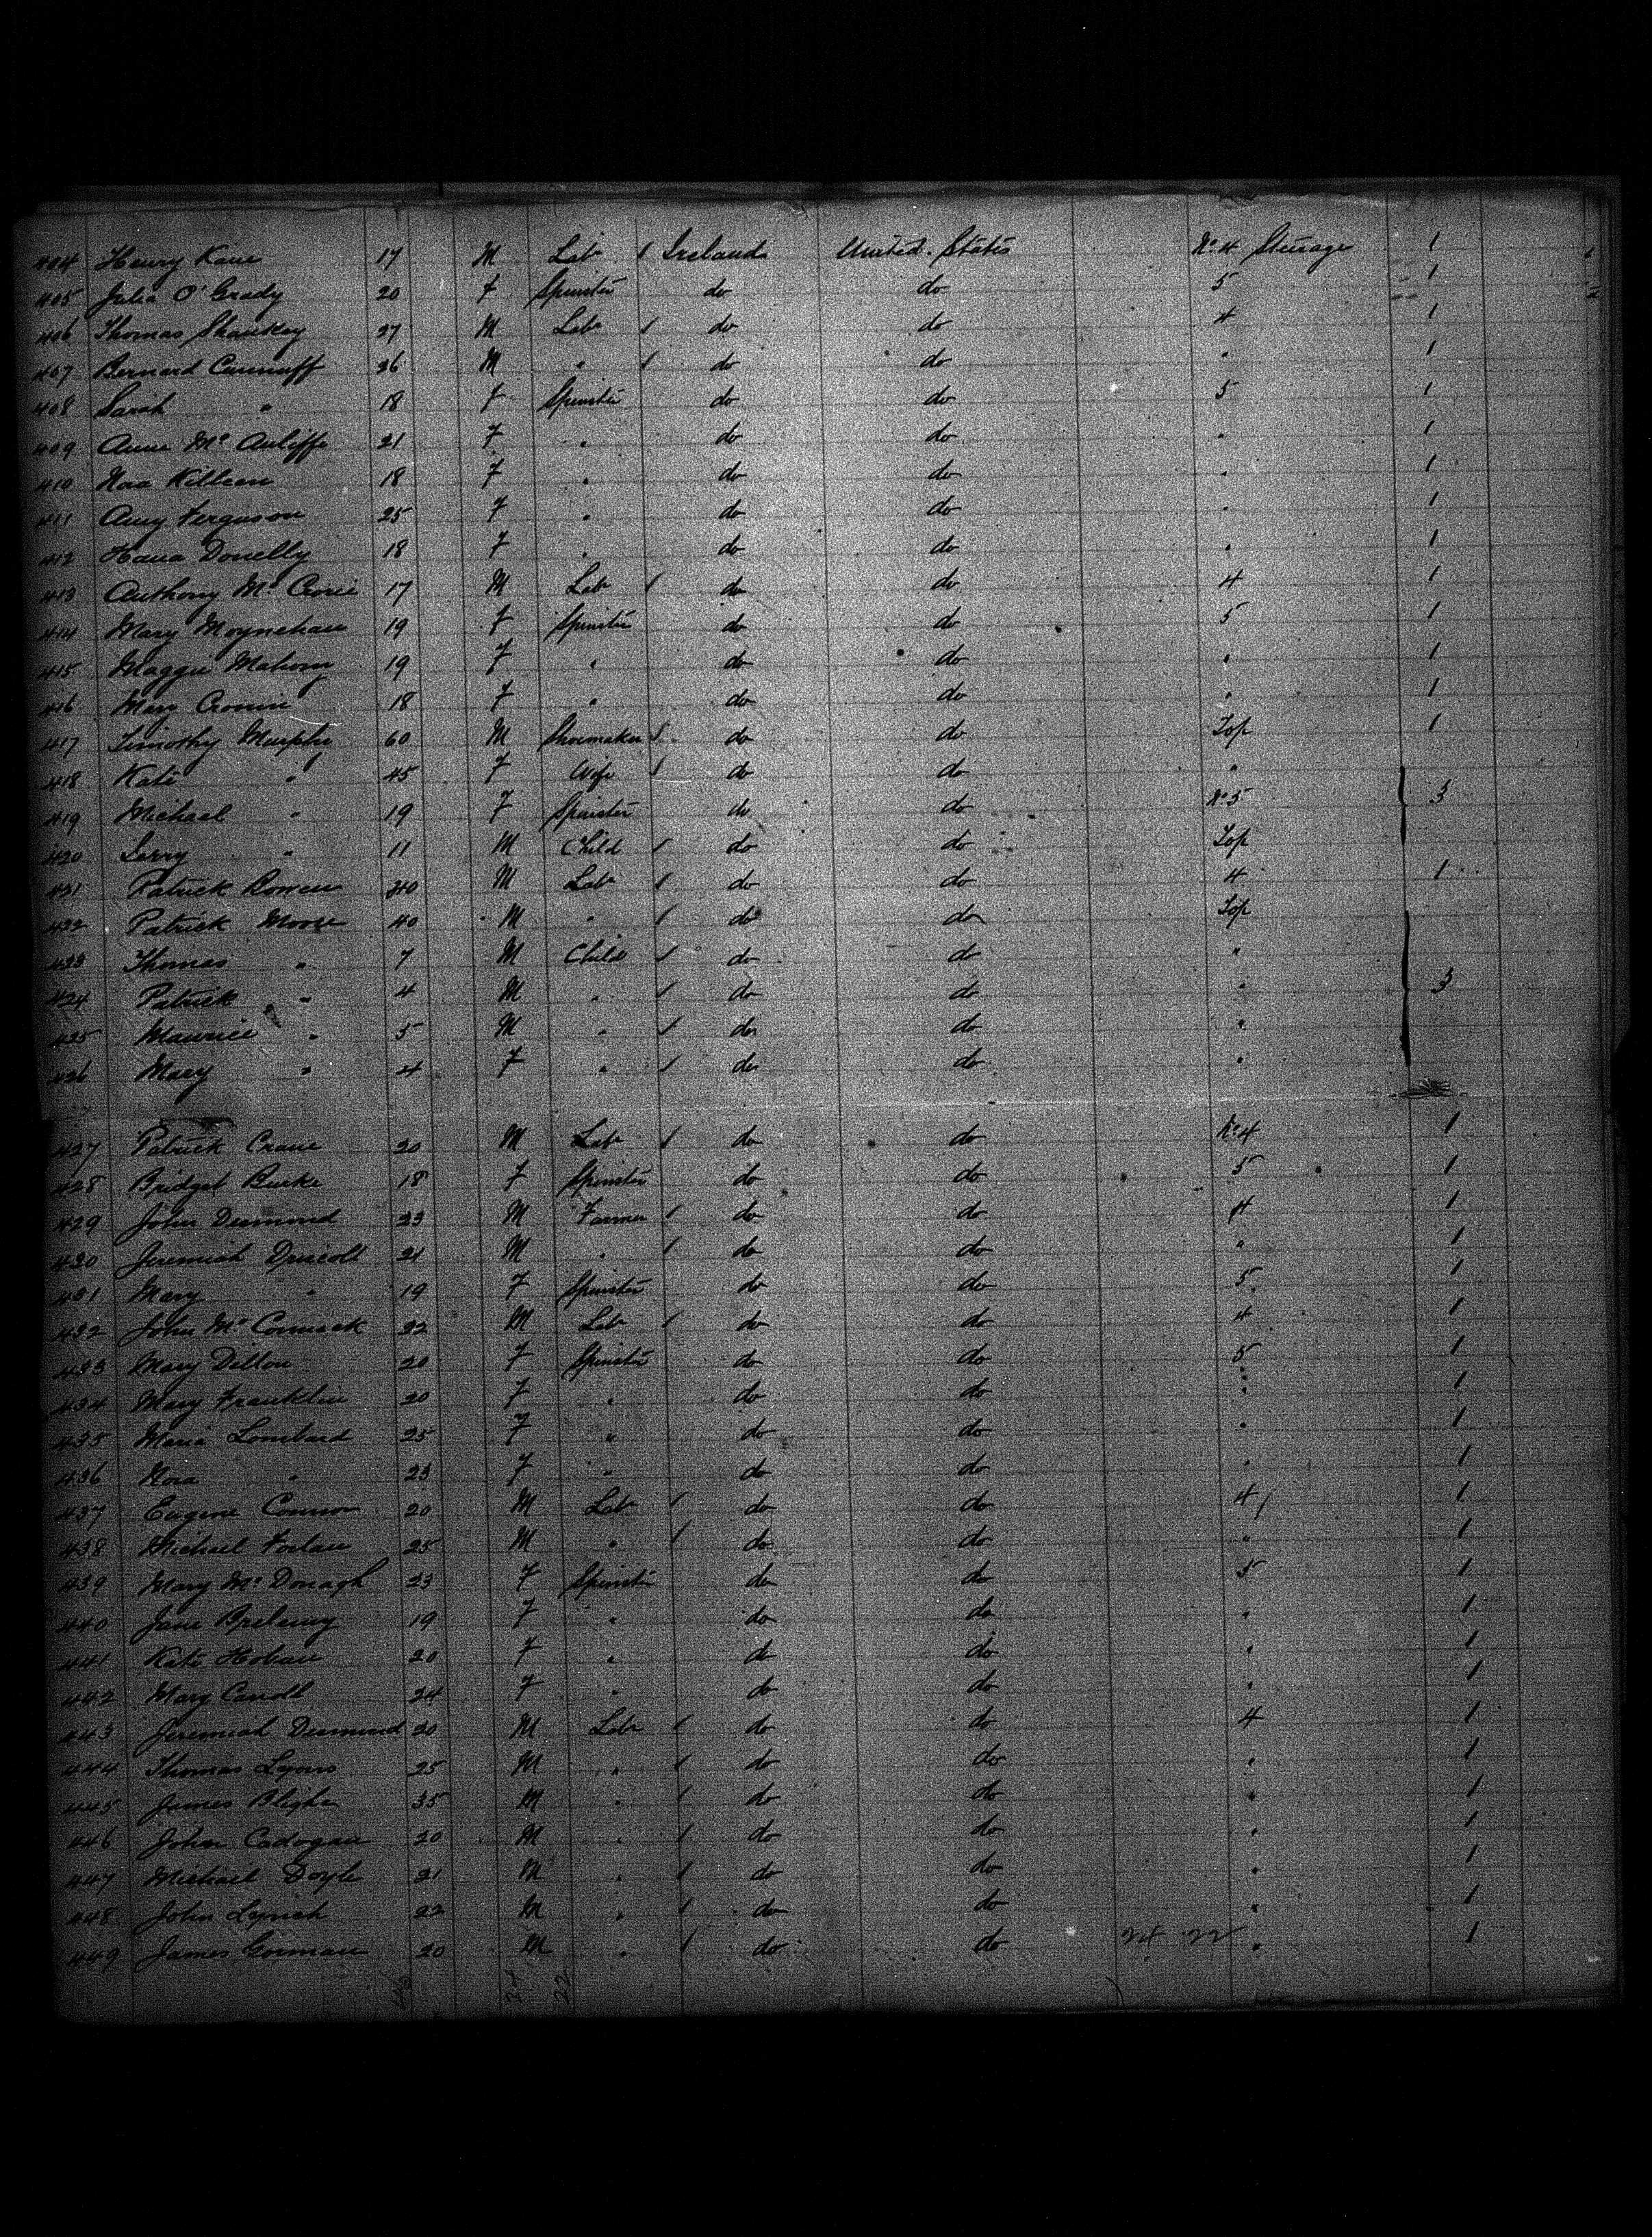 404 Henry Kane 17 M Labr 1 Ireland United States No 4 Steerage 1
405 Julia O'Grady 20 F Spinster do do 5 1
406 Thomas 27 M Labr 1 do do 4 1
407 Bernard 26 M " 1 do do " 1
408 Sarah " 18 F Spinster do do 5 1
409 Anne Mc Auliffe 21 F " do do " 1
410 Nora Killeen 18 F " do do " 1
411 Amy Ferguson 25 F " do do " 1
412 Hana Donelly 18 F " do do " 1
413 Anthony Mc 17 M Labr 1 do do 4 1
414 Mary Moynehan 19 F Spinster do do 5 1
415 Maggie Mahony 19 F " do do " 1
416 Mary Cronin 18 F " do do " 1
417 Timothy Murphy 60 M Shoemaker 1 do do Top 1
418 Kate " 45 F Wife 1 do do "
419 Michael " 19 F Spinster do do No 5 3
420 " 11 M Child 1 do do Top
421 Patrick 30 M Labr 1 do do 4 1
422 Patrick Moore 40 M " 1 do do Top
423 Thomas " 7 M Child 1 do do "
424 Patrick " 4 M " 1 do do " 3
425 Maurice " 5 M " 1 do do "
426 Mary " 4 F " 1 do do "
427 Patrick Crane 20 M Labr 1 do do No 4 1
428 Bridget Burke 18 F Spinster do do 5 1
429 John Desmond 23 M Farmer 1 do do 4 1
430 Jeremiah Driscoll 21 M " 1 do do " 1
431 Mary " 19 F Spinster do do 5 1
432 John Mc Cormack 22 M Labr 1 do do 4 1
433 Mary Dillon 20 F Spinster do do 5 1
434 Mary Franklin 20 F " do do " 1
435 Maria Lombard 25 F " do do " 1
436 Nora " 23 F " do do " 1
437 Eugene Connor 20 M Labr 1 do do 4 1
438 Michael 25 M " 1 do do " 1
439 Mary Mc Donagh 23 F Spinster do do 5 1
440 Jane 19 F " do do " 1
441 Kate Hoban 20 F " do do " 1
442 Mary Carroll 24 F " do do " 1
443 Jeremiah Desmond 20 M Labr 1 do do 4 1
444 Thomas Lyons 25 M " 1 do do " 1
445 James Blighe 35 M " 1 do do " 1
446 John Cadogan 20 M " 1 do do " 1
447 Michael Doyle 21 M " 1 do do " 1
448 John Lynch 22 M " 1 do do " 1
449 James Gorman 20 M " 1 do do 24 22 " 1
46 24 22